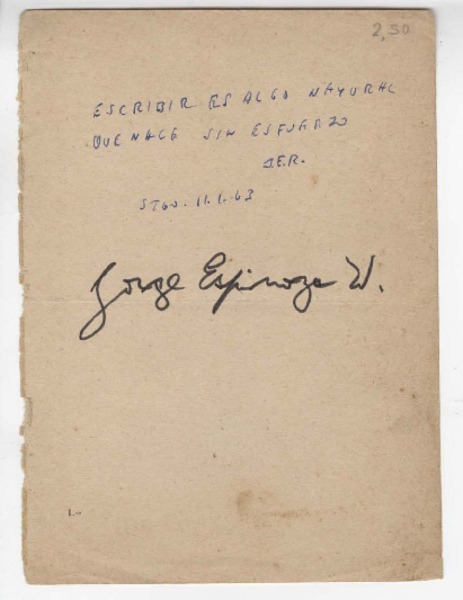 2,50
ESCRIBIR ES ALGO NATURAL
QUE NACE SIN ESFUERZO
J.E.R.
STGO. 11.1.63
Jorge Espinoza W.
1.-